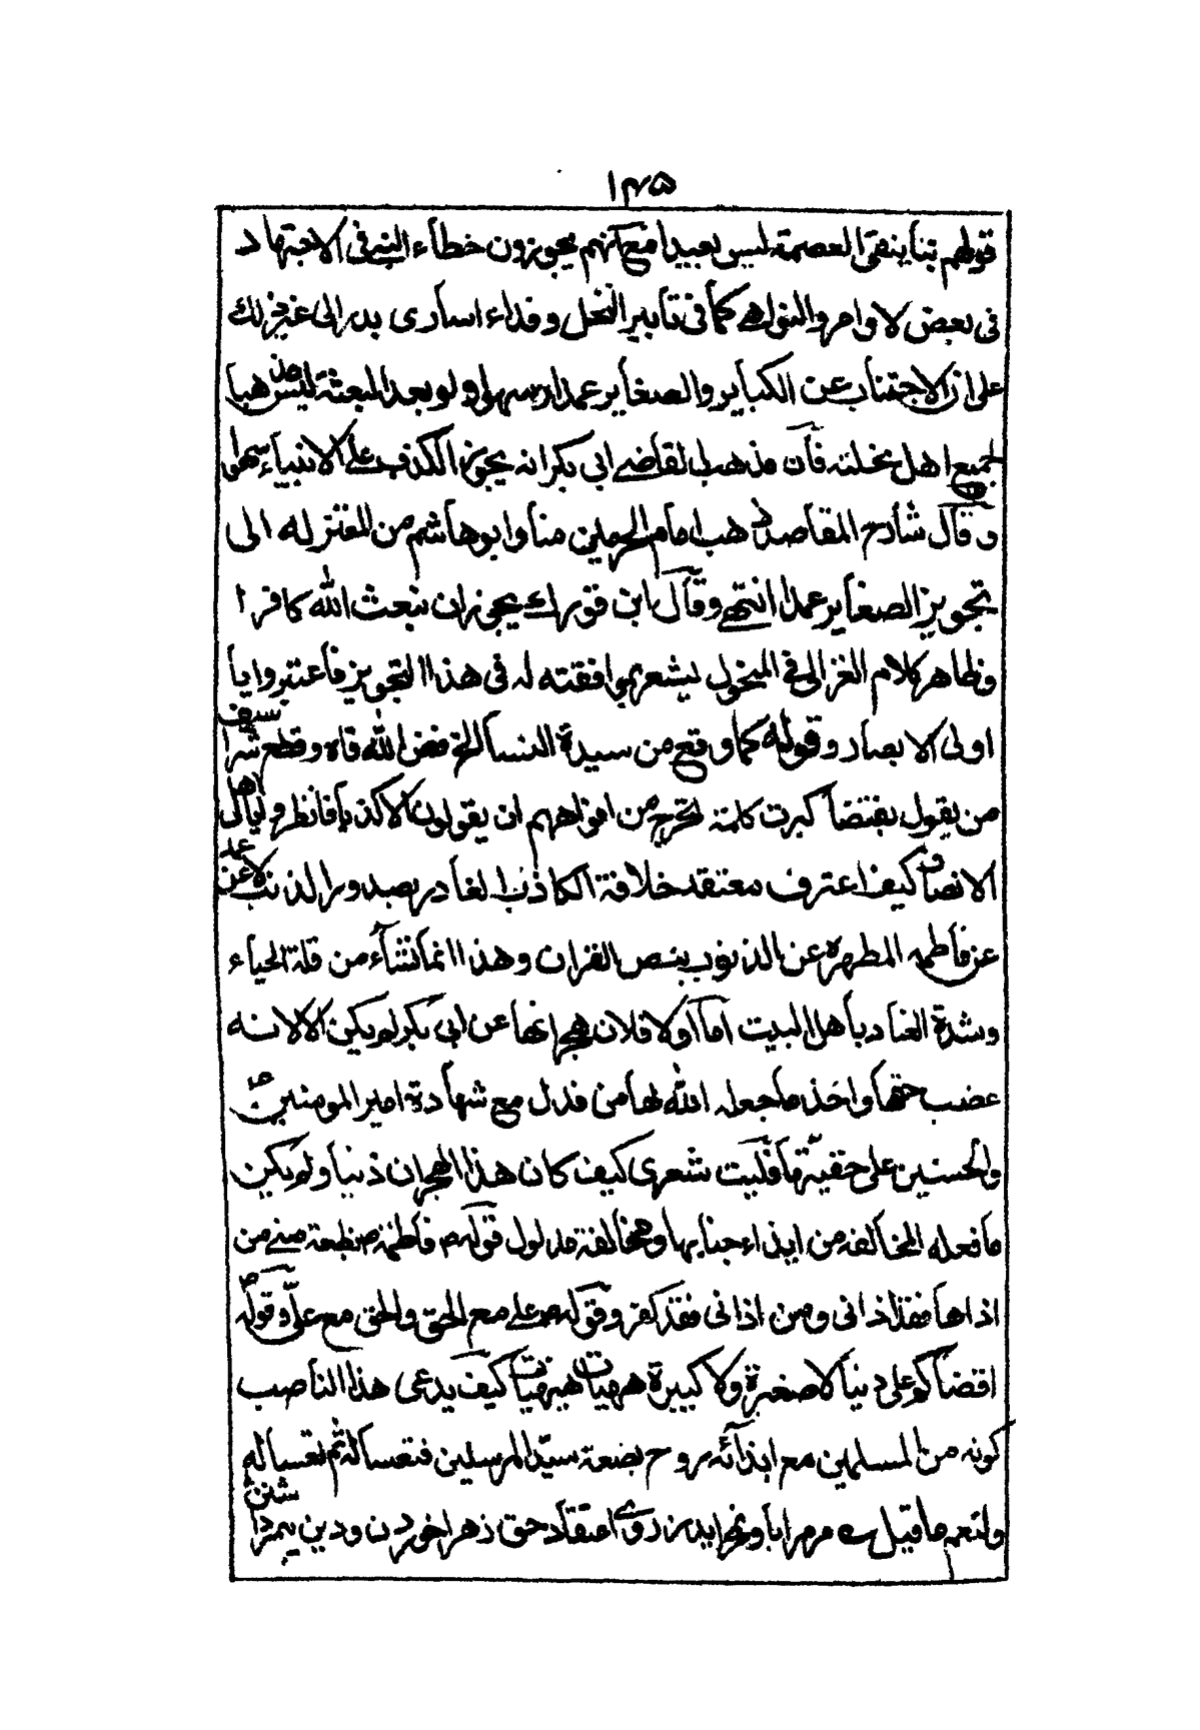 ١٣٥
قولهم بنا ينفى العصمة ليس ببعيد مع كونهم يجوزون خطاء النبي في الاجتهاد
في بعض الاوامر والنواهي كما في تابير النخل وفداء اسارى بدر الى غير ذلك
على ان الاجتناب عن الكباير والصغاير عمدا وسهوا ولو بعد البعثة ليس مذهبا
لجميع اهل نحلته فان مذهب القاضي ابي بكر انه يجوز الكذب على الانبياء سهوا
وقال شارح المقاصد ذهب امام الحرمين منا وابو هاشم من المعتزله الى
تجويز الصغاير عمدا انتهى وقال ابن فورك يجوز ان يبعث الله كافرا
وظاهر كلام الغزالي في المنخول يشعر بموافقته له في هذا التجويز فاعتبروا يا
اولى الابصار وقوله كما وقع من سيدة النسا الخ فض الله فاه وقطع بسيف
من يقول كبرت كلمة تخرج من افواههم ان يقولون الا كذبا فانظروا يا اهل
الانصاف كيف اعترف معتقد خلافة الكاذب الغادر بصدور الذنب
عن فاطمه المطهره عن الذنوب بنص القران وهذا انما نشأ من قلة الحياء
وشدة العناد باهل البيت اما اولا فلان هجرانها عن ابى بكر لم يكن الا لانه
غضب حقها واخذ ما جعله الله لها من فدك مع شهادة امير المومنين
والحسنين على حقيتها فليت شعرى كيف كان هذا الهجران ذنبا ولم يكن
ما فعله المخالف من ايذاء جنابها ومخالفة مدلول قوله ص فاطمة بضعة مني من
اذاها فقد اذانى ومن اذانى فقد كفر وقوله ص على مع الحق والحق مع علي وقوله ص
اقضاكم على ذنبا لا صغيرة ولا كبيرة هيهات هيهات كيف يدعى هذا الناصب
كونه من المسلمين مع ايذائه روح بضعة سيد المرسلين فتعسا له ثم تعسا له
ولنعم ما قيل اعتقاد حق زهرا خوردن ودين